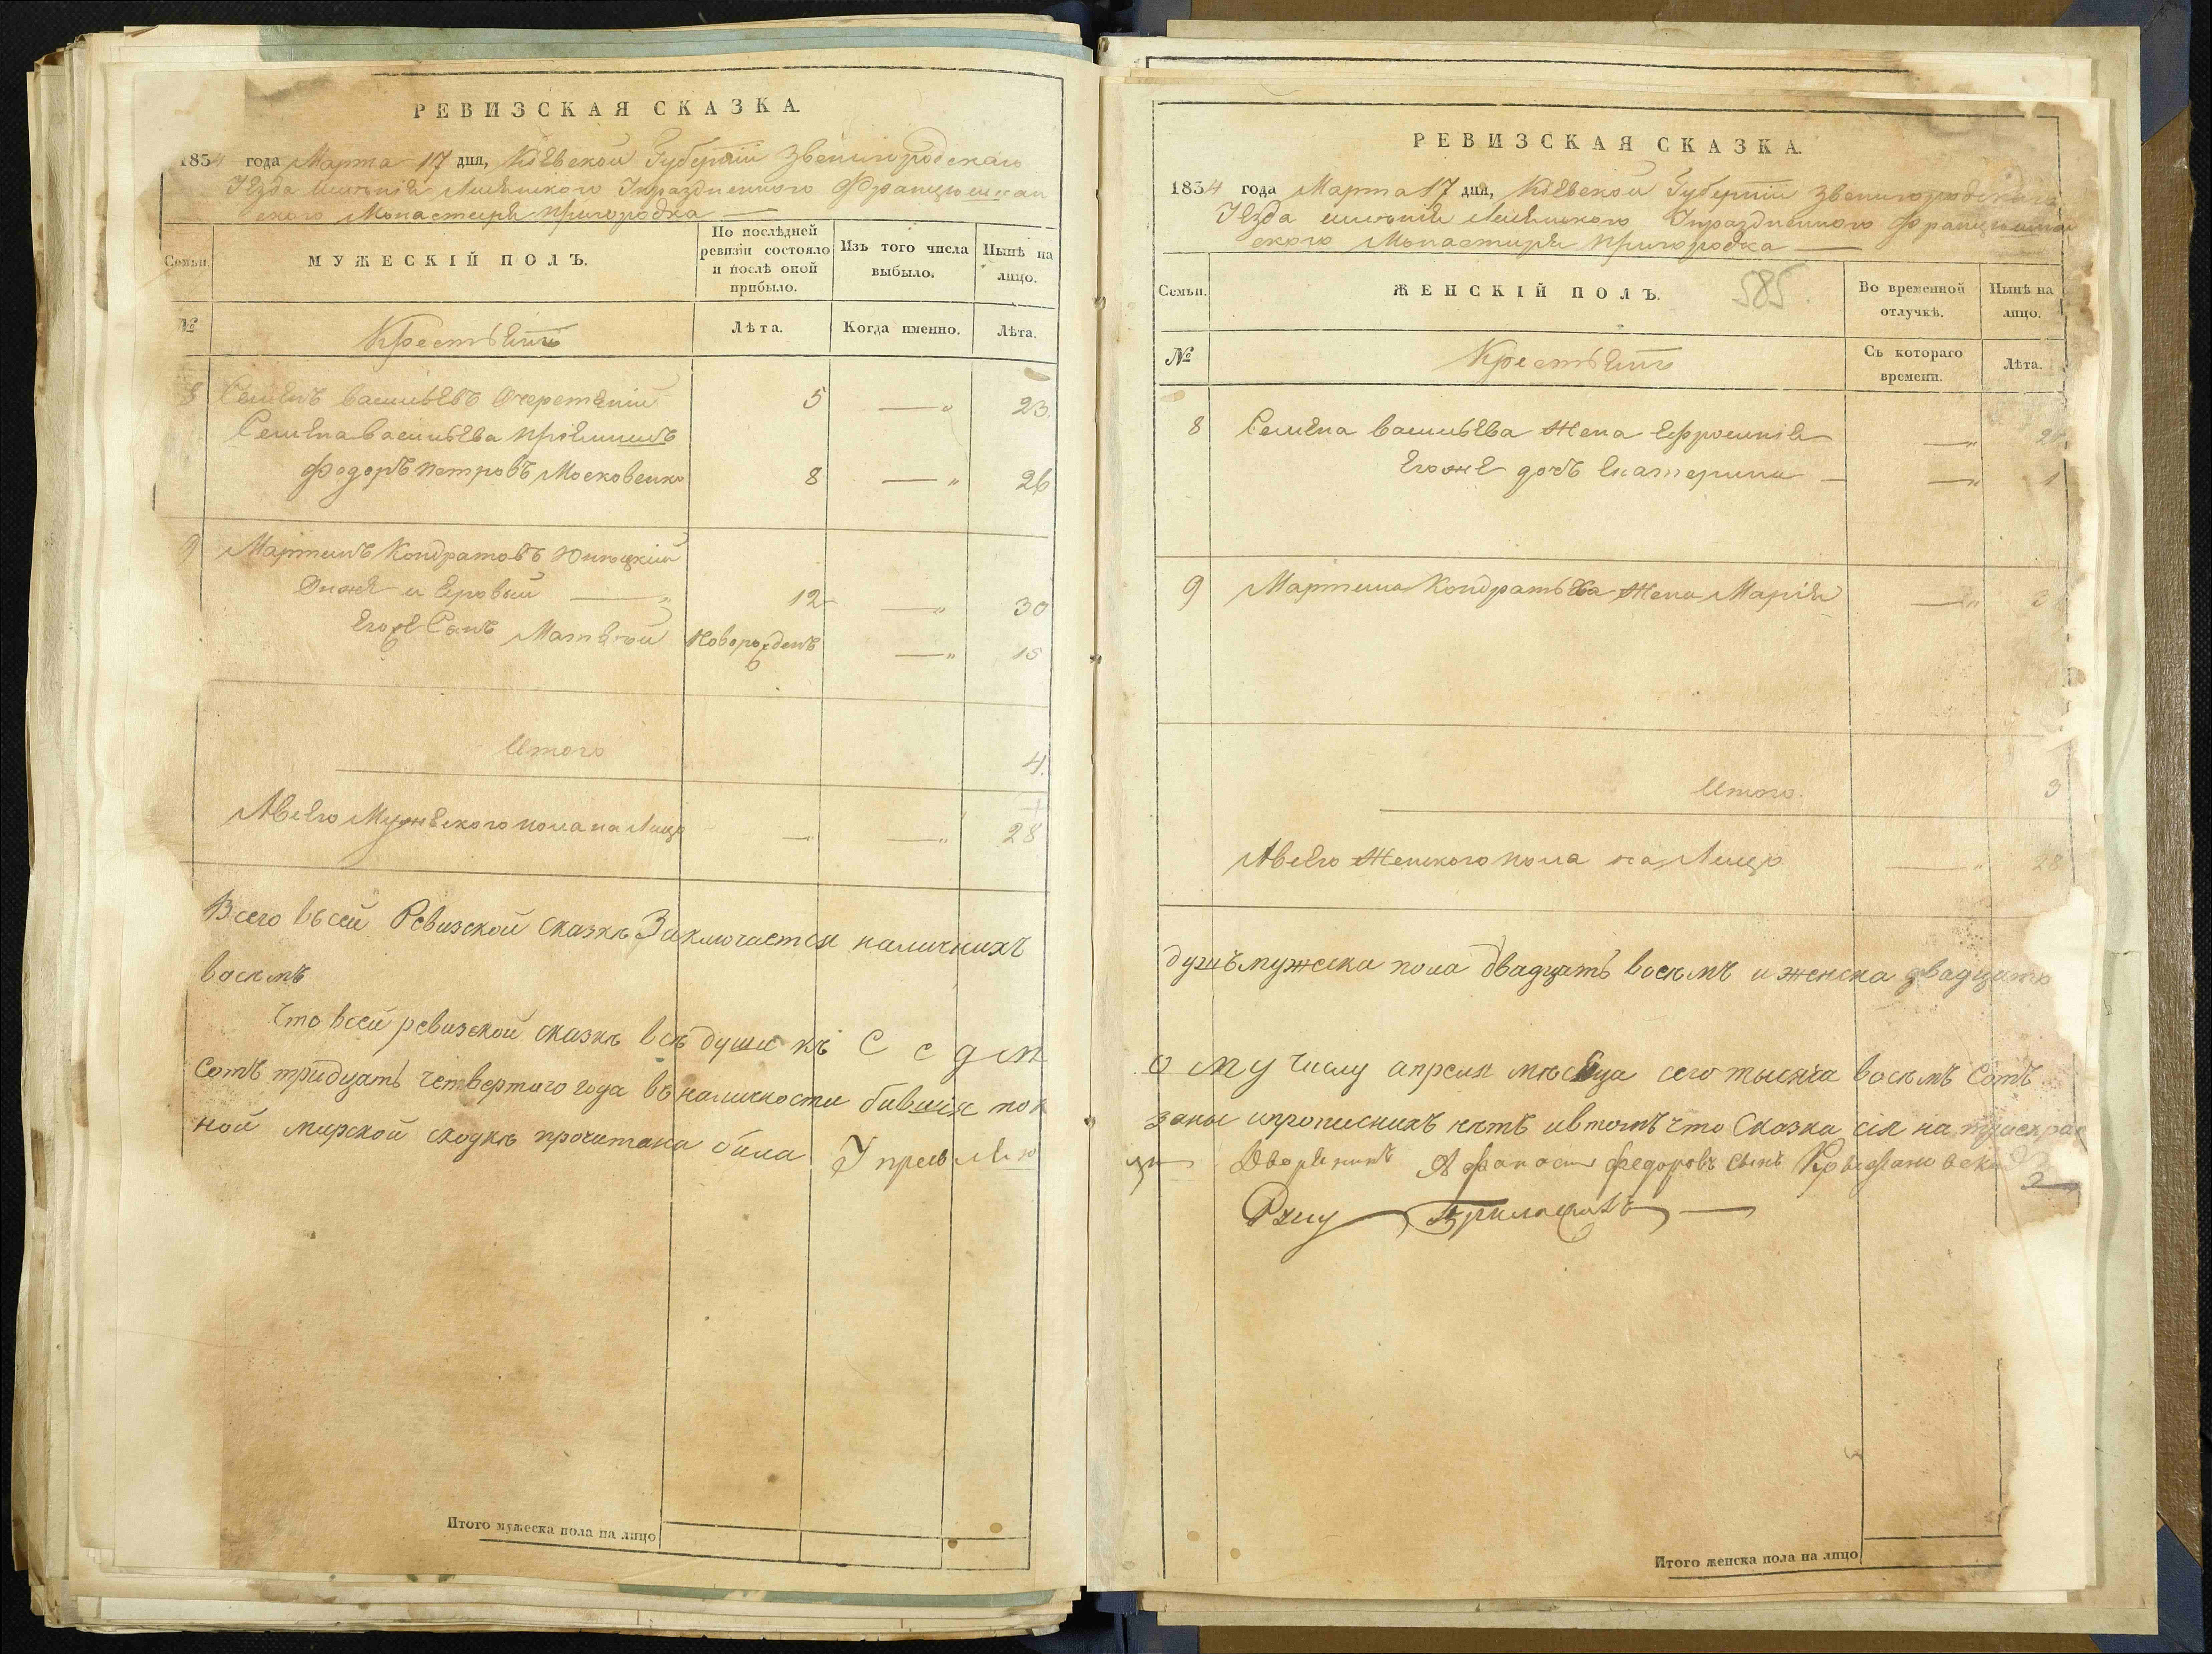 РЕВИЗСКАЯ СКАЗКА.
1834 года Марта 17 дня, Кіевской Губерніи Звенигородскаго
Уезда именія Упраздненного Францышкан
ского Монастыря Пригородка
Семьи.
МУЖЕСКІЙ ПОЛЪ.
По послѣдней ревизіи состояло и послѣ оной прибыло.
Изъ того числа выбыло.
Нынѣ на лицо.
№
Крестьянъ
Лѣта.
Когда именно.
Лѣта.
8 Семенъ Васильевъ Очеретяній 5 —„ 23.
Семена Васильева Пріемишъ
Федоръ Петровъ Московенко 8 —„ 26
9 Мартинъ Кондратовъ
Онже и Еровый —„ 12 —„ 30
Егоже Сынъ Матвей Новорожденъ —„ 15
Итого 4.
А Всего Мужескогопола на Лицо —„ —„ 28
Всего въсей Ревизской сказкѣ Заключается наличнихъ
восемъ
Что всей ревизской сказкѣ всѣ души къ С е д м
сотъ тридцать четвертого года въ наличности бившія пок
ной мирской сходкѣ прочитана била Управляю
Итого мужеска пола на лицо
РЕВИЗСКАЯ СКАЗКА.
1834 года Марта 17 дня, Кіевской Губерніи Звенигородскаго
Уезда именія Упраздненного Францышкан
ского Монастыря Пригородка
Семьи.
ЖЕНСКІЙ ПОЛЪ.
585.
Во временной отлучкѣ.
Нынѣ на лицо.
№
Крестьянъ
Съ котораго времени.
Лѣта.
8 Семена Васильева Жена Ефросинія —„
Егоже дочь Екатерина — —„ 1
9 Мартина Кондратьева Жена Марія —„
Итого. 3
А Всего Женскогопола на Лицо —„ 28
душъ мужеска пола двадцать восемъ и женска двадцать
о му числу апреля мѣсяца сего тысяча восемъ сотъ
заны ипрописнихъ нѣтъ ивтомъ что Сказка сія на
щій Дворянинъ Афанасій Федоровъ сынъ
Итого женска пола на лицо